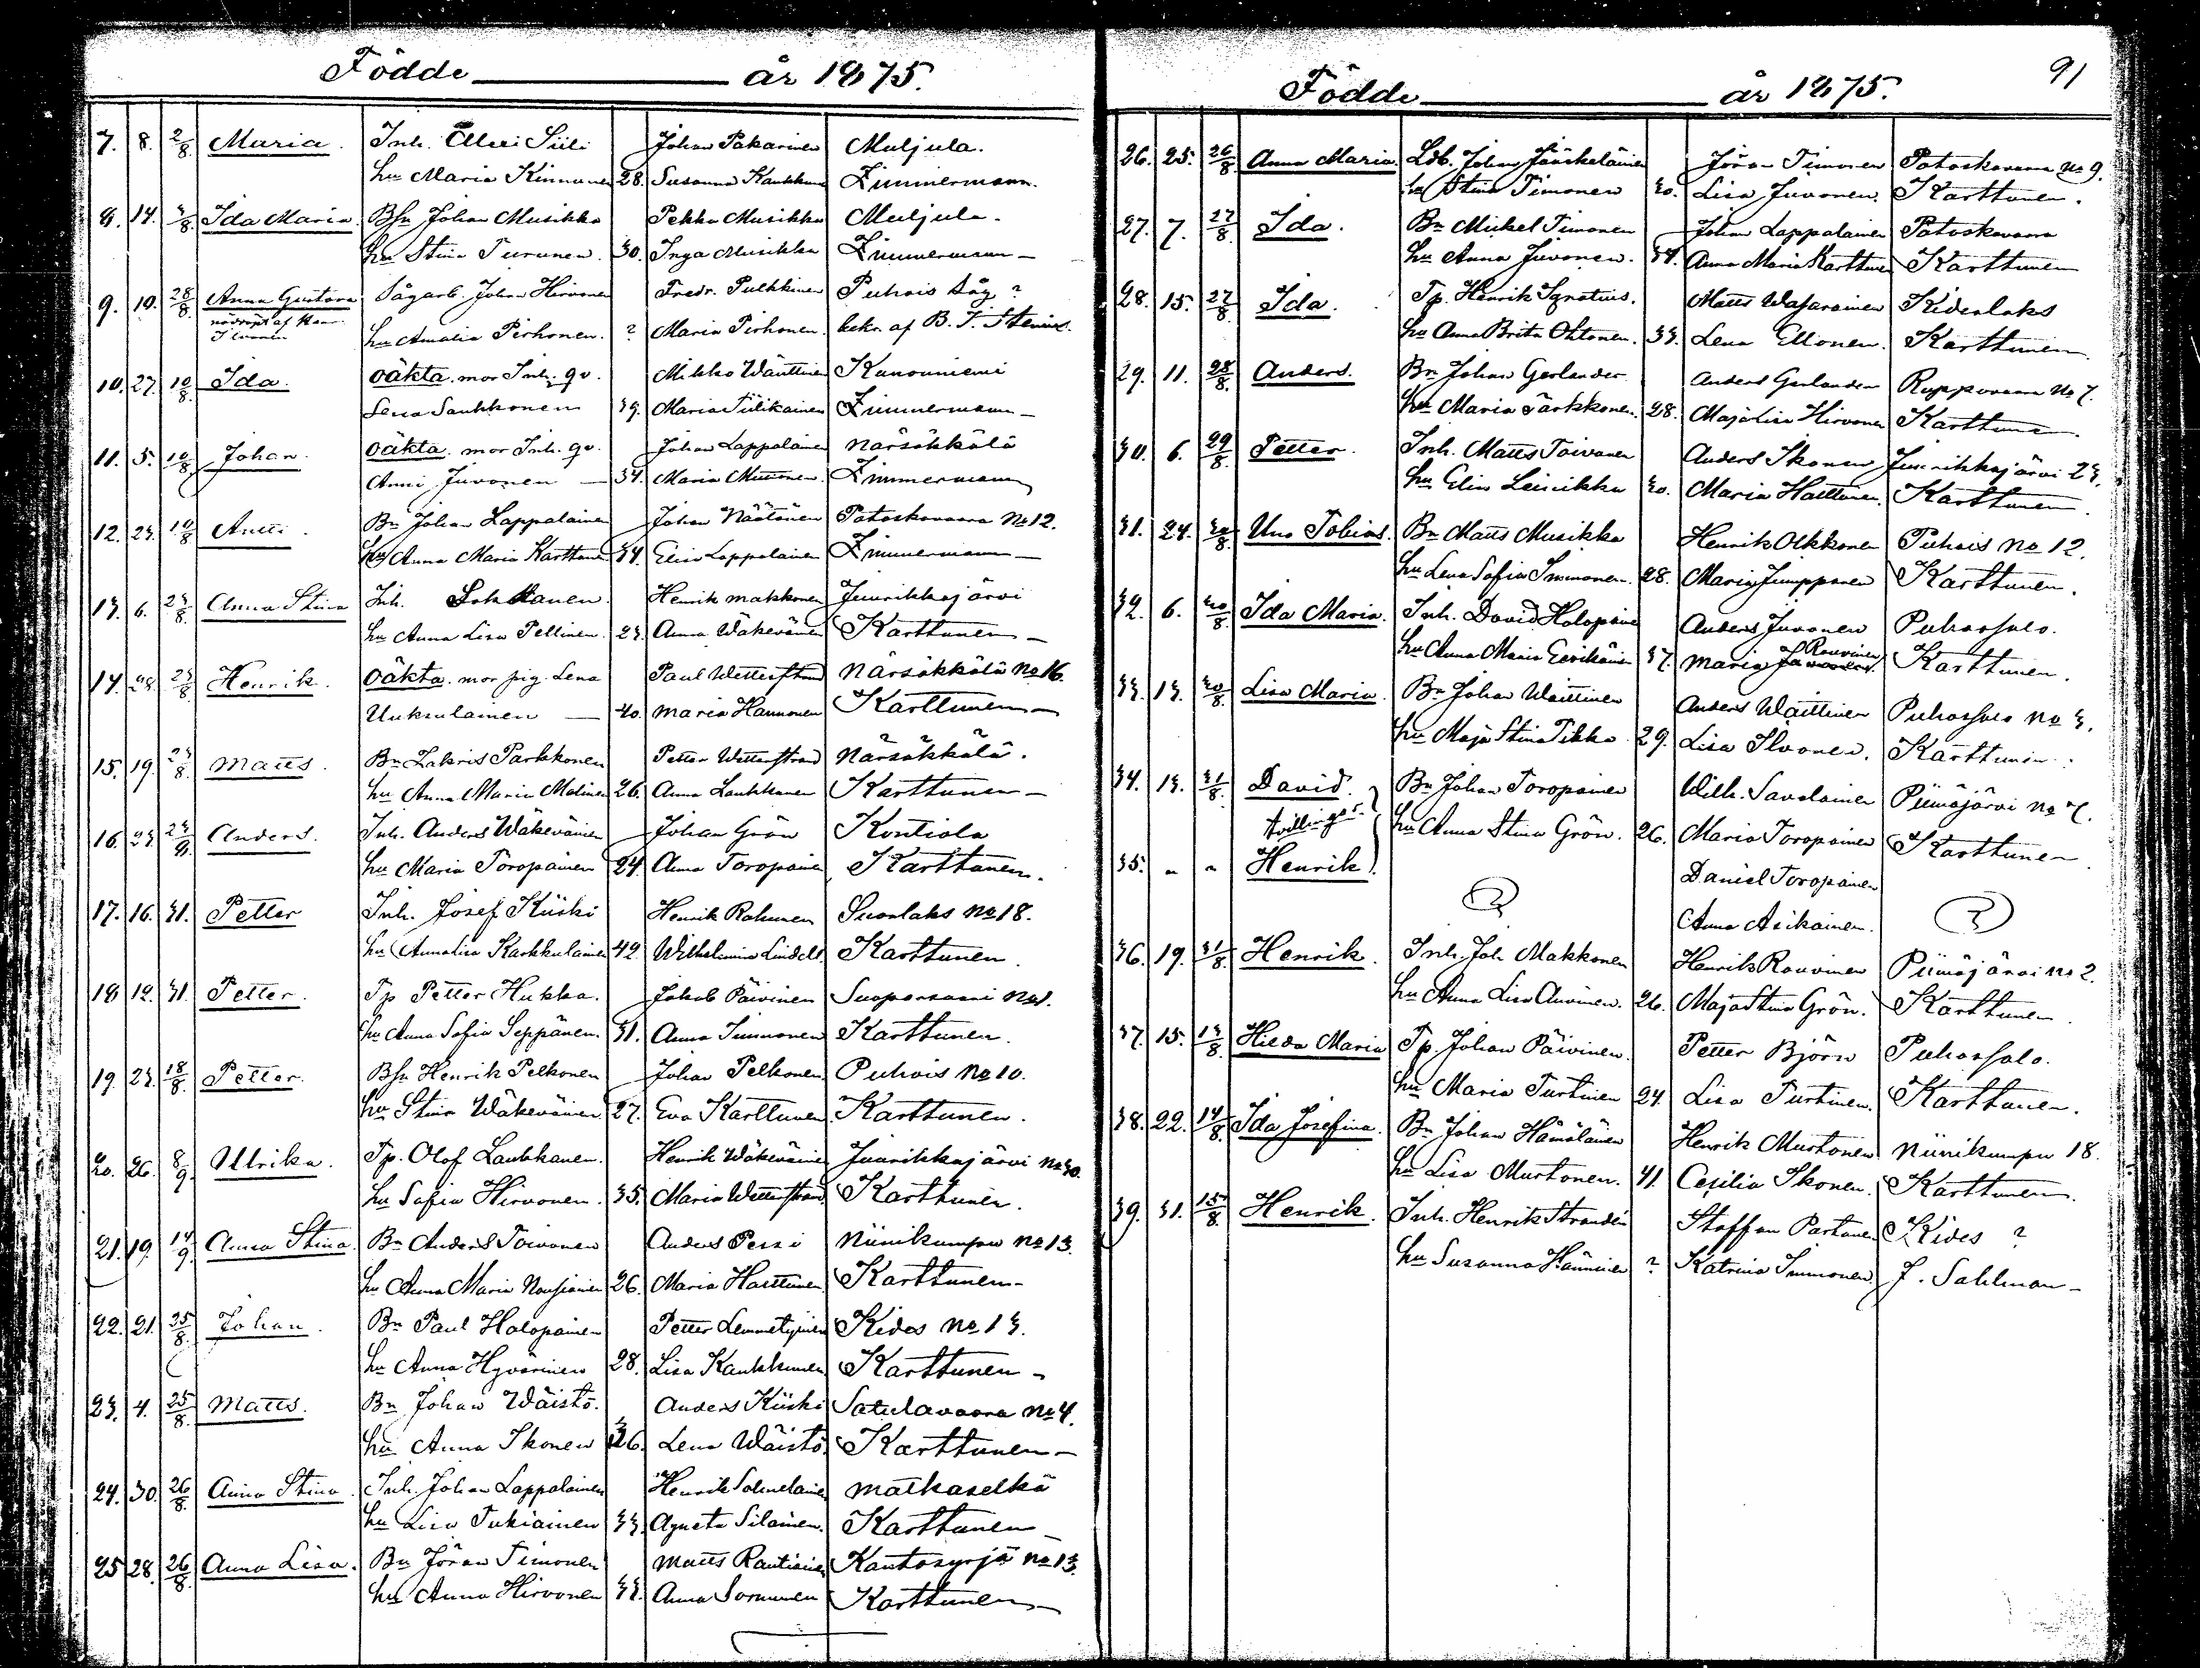 Födde år 1875.
7. 8. 2/8 Maria. Inh. Elleri Siili Johan Pakarinen Muljula.
hu Maria Kinnunen 28. Susanna Kaukkunen Zimmermann.
8. 14. 3/8 Ida Maria Bsn Johan Musikka Pekka Musikka Muljula.
hu Stina Turunen. 30. Inga Musikka Zimmermann
9. 10. 28/8 Anna Gustava Sågarb. Johan Hirvonen Fredr. Pulkkinen Puhois såg ?
nöddöpt af Hanr. hu Amalia Pirhonen. ? Maria Pirhonen. bekr. af B. T. Stenius.
Ilvonen
10. 27. 10/8 Ida. oäkta. mor Inh. qv. Mikko Wänttinen Kunonniemi
Lena Saukkonen 39. Maria Tiilikainen Zimmermann
11. 5. 10/8 Johan. oäkta. mor Inh. qv. Johan Lappalainen Närsäkkälä
Anni Juvonen 34. Maria Muttonen. Zimmermann
12. 23. 10/8 Antti. Bn Johan Lappalainen Johan Näätänen Potoskavaara No 12.
hu Anna Maria Karttunen 34. Elisa Lappalainen Zimmermann
13. 6. 23/8 Anna Stina Inh. Henrik Makkonen Juurikkajärvi
hu Anna Lisa Pellinen. 23. Anna Wäkeväinen Karttunen
14. 28. 23/8 Henrik. oäkta. mor pig. Lena Paul Wetterstrand Närsäkkälä No 16.
Uuksulainen 40. Maria Hannonen Karttunen
15. 19. 23/8 Matts. Bn Zakris Parkkonen Petter Wetterstrand Närsäkkälä.
hu Anna Maria Malinen 26. Anna Laukkanen Karttunen
16. 23. Anders. Inh. Anders Wäkeväinen Johan Grön Kontiola
hu Maria Toropainen 24. Anna Toropainen Karttunen.
17. 16. 31. Petter Inh. Josef Kiiski Henrik Rahunen Suorlaks No 18.
hu Annalisa Karkkulainen 42. Wilhelmina Lindell. Karttunen.
18 12. 31. Petter. Tp Petter Hukka. Jakob Päivinen Suoporsaari No 1.
hu Anna Sofia Seppänen. 31. Anna Immonen Karttunen.
19. 23. 18/8 Petter. Bsn Henrik Pelkonen Johan Pelkonen Puhois No 10.
hu Stina Wäkeväinen 27. Eva Karttunen Karttunen.
20. 26. 8/9 Ulrika. Tp. Olof Laukkanen. Henrik Wäkeväinen Juurikkajärvi No 30.
hu Sofia Hirvonen. 35. Maria Wetterstrand Karttunen.
21. 19. 14/9 Anna Stina. Bn Anders Toivonen Anders Pessi Niinikumpu No 13.
hu Anna Maria Nousiainen 26. Maria Harttunen Karttunen
22. 21. 25/8 Johan. Bn Paul Holopainen Petter Lemmetyinen Kides No 13.
hu Anna Hyvärinen 28. Lisa Kaukkunen Karttunen
23. 4. 25/8 Matts. Bn Johan Wäistö. Anders Kiiski Satulavaara No 4.
hu Anna Ikonen 36. Lena Wäistö. Karttunen
24. 30. 26/8 Anna Stina. Inh. Johan Lappalainen Henrik Matkaselkä
hu Lisa Tukiainen 33. Agneta Silainen. Karttunen
25 28. 26/8 Anna Lisa. Bn Jöran Timonen Matts Rautiainen Kantosyrjä No 13.
hu Anna Hirvonen 33. Anna Sormunen Karttunen
Födde år 1875. 91
26. 25. 26/8 Anna Maria. Ldb. Johan Jääskeläinen Jöran Timonen Potoskavaara No 9.
hu Stina Timonen 30. Lisa Juvonen. Karttunen.
27. 7. 27/8 Ida. Bn Mickel Timonen Johan Lappalainen Potoskavaara
hu Anna Juvonen. 34. Anna Maria Karttunen Karttunen
28. 15. 27/8 Ida. Tp. Henrik Ignatius. Matts Wasarainen Kidenlaks
hu Anna Brita Ohtonen. 33. Lena Ellonen. Karttunen.
29. 11. 28/8 Anders. Bn Johan Gerlander Anders Gerlander Ruppovaara No 7.
hu Maria Parkkonen. 28. Maja Lisa Hirvonen Karttunen.
30. 6. 29/8 Petter. Inh. Matts Toivanen Anders Ikonen Juurikkajärvi 23.
hu Elin Leinikka 30. Maria Harttunen. Karttunen.
31. 24. 30/8 Uno Tobias. Bn Matts Musikka Henrik Olkkonen Puhois No 12.
hu Lena Sofia Immonen. 28. Maria Jumppanen Karttunen.
32. 6. 30/8 Ida Maria. Inh. David Holopainen Anders Juvonen Puhossalo.
hu Anna Maria Eerikäinen 37. Maria Rouvinen Karttunen.
33. 13. 30/8 Lisa Maria. Bn Johan Waittinen Anders Waittinen Puhossalo No 3.
hu Maja Stina Tikka 29. Lisa Ilvonen. Karttunen.
34. 13. 31/8 David. Bn Johan Toropainen Wilh. Savolainen Piimäjärvi No 7.
tvillingar hu Anna Stina Grön. 26. Maria Toropainen Karttunen
35. " " Henrik Daniel Toropainen
2 Anna Asikainen. 2
36. 19. 31/8 Henrik. Inh. Joh. Makkonen Henrik Rouvinen Piimäjärvi No 2.
hu Anna Lisa Auvinen. 26. Maja Stina Grön. Karttunen.
37. 15. 13/8 Hilda Maria Tp. Johan Päivinen. Petter Björn Puhossalo.
hu Maria Turtinen 24. Lisa Turtinen. Karttunen.
38. 22. 14/8 Ida Josefina. Bn Johan Hämäläinen Henrik Mustonen Niinikumpu 18.
hu Lisa Mustonen. 41. Cesilia Ikonen. Karttunen.
39. 31. 15/8 Henrik. Inh. Henrik Strandén Staffan Partanen Kides ?
hu Susanna Hänninen ? Katrina Immonen J. Sahlman